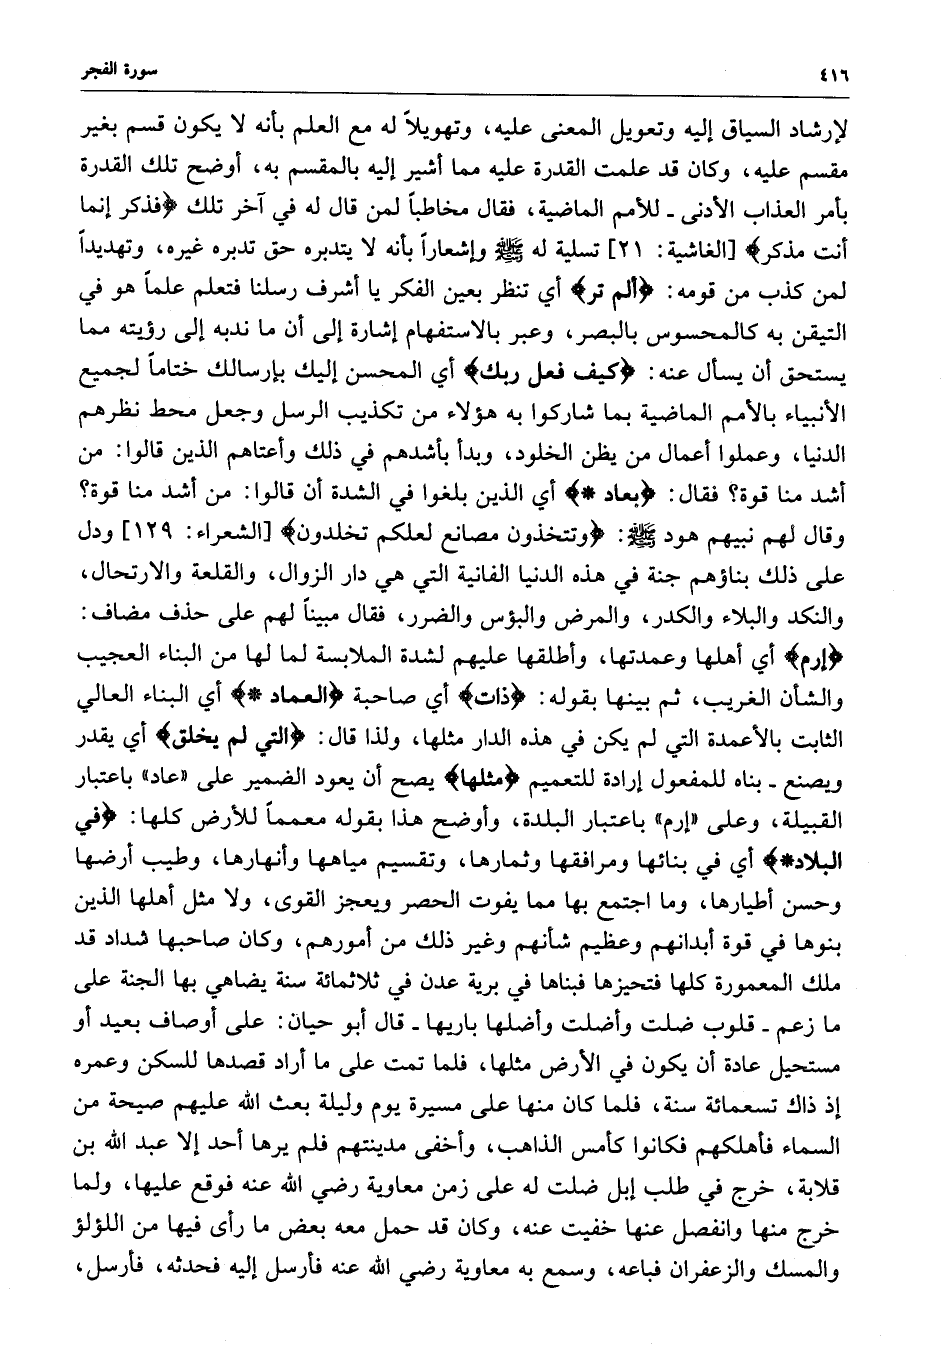 ٤١٦ سورة الفجر
لإرشاد السياق إليه وتعويل المعنى عليه، وتهويلاً له مع العلم بأنه لا يكون قسم بغير
مقسم عليه، وكان قد علمت القدرة عليه مما أشير إليه بالمقسم به، أوضح تلك القدرة
بأمر العذاب الأدنى ـ للأمم الماضية، فقال مخاطباً لمن قال له في آخر تلك ﴿فذكر إنما
أنت مذكر﴾ [الغاشية: ٢١] تسلية له ﷺ وإشعاراً بأنه لا يتدبره حق تدبره غيره، وتهديداً
لمن كذب من قومه: ﴿ألم تر﴾ أي تنظر بعين الفكر يا أشرف رسلنا فتعلم علماً هو في
التيقن به كالمحسوس بالبصر، وعبر بالاستفهام إشارة إلى أن ما ندبه إلى رؤيته مما
يستحق أن يسأل عنه: ﴿كيف فعل ربك﴾ أي المحسن إليك بإرسالك ختاماً لجميع
الأنبياء بالأمم الماضية بما شاركوا به هؤلاء من تكذيب الرسل وجعل محط نظرهم
الدنيا، وعملوا أعمال من يظن الخلود، وبدأ بأشدهم في ذلك وأعتاهم الذين قالوا: من
أشد منا قوة؟ فقال: ﴿بعاد *﴾ أي الذين بلغوا في الشدة أن قالوا: من أشد منا قوة؟
وقال لهم نبيهم هود ﷺ: ﴿وتتخذون مصانع لعلكم تخلدون﴾ [الشعراء: ١٢٩] ودل
على ذلك بناؤهم جنة في هذه الدنيا الفانية التي هي دار الزوال، والقلعة والارتحال،
والنكد والبلاء والكدر، والمرض والبؤس والضرر، فقال مبيناً لهم على حذف مضاف:
﴿إرم﴾ أي أهلها وعمدتها، وأطلقها عليهم لشدة الملابسة لما لها من البناء العجيب
والشأن الغريب، ثم بينها بقوله: ﴿ذات﴾ أي صاحبة ﴿العماد *﴾ أي البناء العالي
الثابت بالأعمدة التي لم يكن في هذه الدار مثلها، ولذا قال: ﴿التي لم يخلق﴾ أي يقدر
ويصنع ـ بناه للمفعول إرادة للتعميم ﴿مثلها﴾ يصح أن يعود الضمير على «عاد» باعتبار
القبيلة، وعلى «إرم» باعتبار البلدة، وأوضح هذا بقوله معمماً للأرض كلها: ﴿في
البلاد*﴾ أي في بنائها ومرافقها وثمارها، وتقسيم مياهها وأنهارها، وطيب أرضها
وحسن أطيارها، وما اجتمع بها مما يفوت الحصر ويعجز القوى، ولا مثل أهلها الذين
بنوها في قوة أبدانهم وعظيم شأنهم وغير ذلك من أمورهم، وكان صاحبها شداد قد
ملك المعمورة كلها فتحيزها فبناها في برية عدن في ثلاثمائة سنة يضاهي بها الجنة على
ما زعم ـ قلوب ضلت وأضلت وأضلها باريها ـ قال أبو حيان: على أوصاف بعيد أو
مستحيل عادة أن يكون في الأرض مثلها، فلما تمت على ما أراد قصدها للسكن وعمره
إذ ذاك تسعمائة سنة، فلما كان منها على مسيرة يوم وليلة بعث الله عليهم صيحة من
السماء فأهلكهم فكانوا كأمس الذاهب، وأخفى مدينتهم فلم يرها أحد إلا عبد الله بن
قلابة، خرج في طلب إبل ضلت له على زمن معاوية رضي الله عنه فوقع عليها، ولما
خرج منها وانفصل عنها خفيت عنه، وكان قد حمل معه بعض ما رأى فيها من اللؤلؤ
والمسك والزعفران فباعه، وسمع به معاوية رضي الله عنه فأرسل إليه فحدثه، فأرسل،